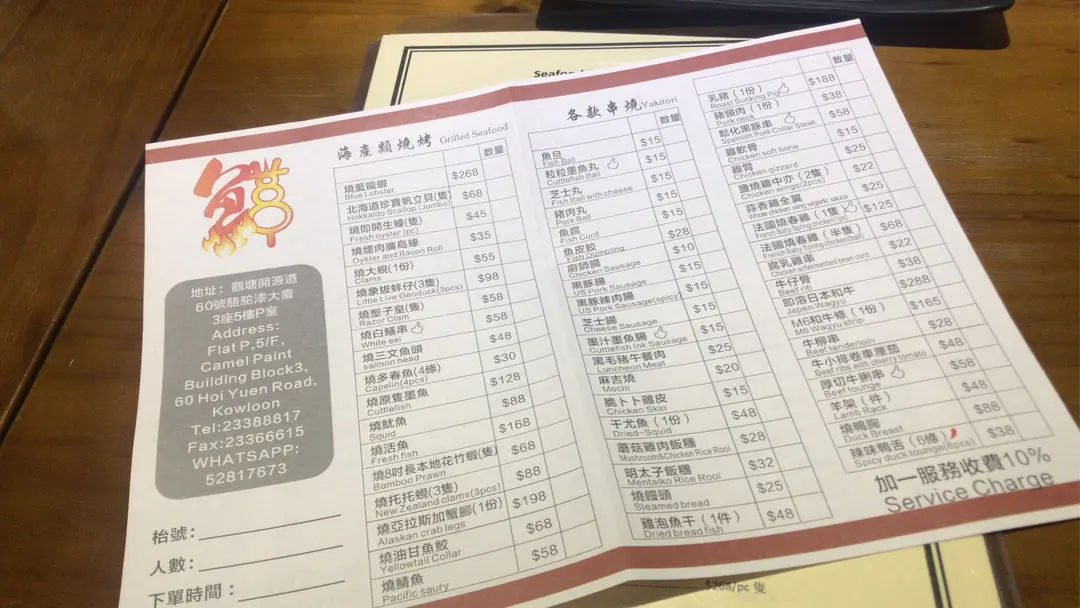 Seafoo
鮮
地址：觀塘開源道
60號駱駝漆大廈
3座5樓P室
Address:
Flat P,5/F,
Camel Paint
Building Block3,
60 Hoi Yuen Road,
Kowloon
Tel:23388817
Fax:23366615
WHATSAPP:
52817673
枱號：
人數：
下單時間：
海產類燒烤 Grilled Seafood
數量
燒藍龍蝦 $268
Blue Lobster
北海道珍寶帆立貝(隻) $68
Hokkaido Scallop (Jumbo)
燒即開生蠔(隻) $45
Fresh oyster (pc)
燒煙肉廣島蠔 $35
Oyster and Bacon Roll
燒大蜆(1份) $55
Clams
燒象拔蚌仔(3隻) $98
Little Live Geoduck(3pcs)
燒聖子皇(隻) $58
Razor Clam
燒白鱔串 $58
White eel
燒三文魚頭 $48
salmon head
燒多春魚(4條) $30
Capelin(4pcs)
燒原隻墨魚 $128
Cuttlefish
燒魷魚 $88
Squid
燒活魚 $168
Fresh fish
燒8吋長本地花竹蝦(隻) $68
Bamboo Prawn
燒托托蜆(3隻) $88
New Zealand clams(3pcs)
燒亞拉斯加蟹腳(1份) $198
Alaskan crab legs
燒油甘魚鮫 $68
Yellowtail Collar
燒鯖魚 $58
Pacific saury
各款串燒 Yakitori
數量
魚旦 $15
Fish Ball
粒粒墨魚丸 $15
Cuttlefish Ball
芝士丸 $15
Fish Ball with cheese
豬肉丸 $15
Pork Ball
魚腐 $15
Fish Curd
魚皮餃 $28
Fish Dumpling
廚師腸 $10
Chicken Sausage
黑豚腸 $15
US Pork Sausage
黑豚辣肉腸 $15
US Pork Sausage(spicy)
芝士腸 $15
Cheese Sausage
墨汁墨魚腸 $15
Cuttlefish Ink Sausage
黑毛豬午餐肉 $25
Luncheon Meat
麻吉燒 $20
Mochi
脆卜卜雞皮 $15
Chicken Skin
干尤魚（1份） $48
Dried-Squid
蘑菇雞肉飯糰 $28
Mushroom&Chicken Rice Rool
明太子飯糰 $32
Mentaiko Rice Rool
燒饅頭 $25
Steamed bread
雞泡魚干（1件） $48
Dried bread fish
數量
乳豬（1份） $188
Roast Sucking Pig
豬頸肉（1份） $38
Pork neck
鬆化黑豚串 $58
Spainish Pork Collar Steak
雞軟骨 $15
Chicken soft bone
雞腎 $25
Chicken gizzard
鹽燒雞中亦（2隻） $22
Chicken wings(2pcs)
蒜香雞全翼 $25
Whole chicken wing w/garlic sauce
法國燒春雞（1隻） $125
French Baby Spring chicken(1pc)
法國燒春雞（半隻） $68
French Baby Spring chicken(half)
腐乳雞串 $22
Chicken w/fermented bean curd
牛仔骨 $38
Beef rib
即溶日本和牛 $288
Japen Wagyu
M6和牛條（1份） $165
M6 Wagyu strip
牛柳串 $28
Beef tenderloin
牛小排卷車厘茄 $48
Beef ribs with cherry tomato
厚切牛脷串 $58
Beef tounge
羊架（件） $48
Lamb Rack
燒鴨胸 $88
Duck Breast
辣味鴨舌（6條） $38
Spicy duck tounge(6pcs)
加一服務收費10%
Service Charge
$268/pc 隻